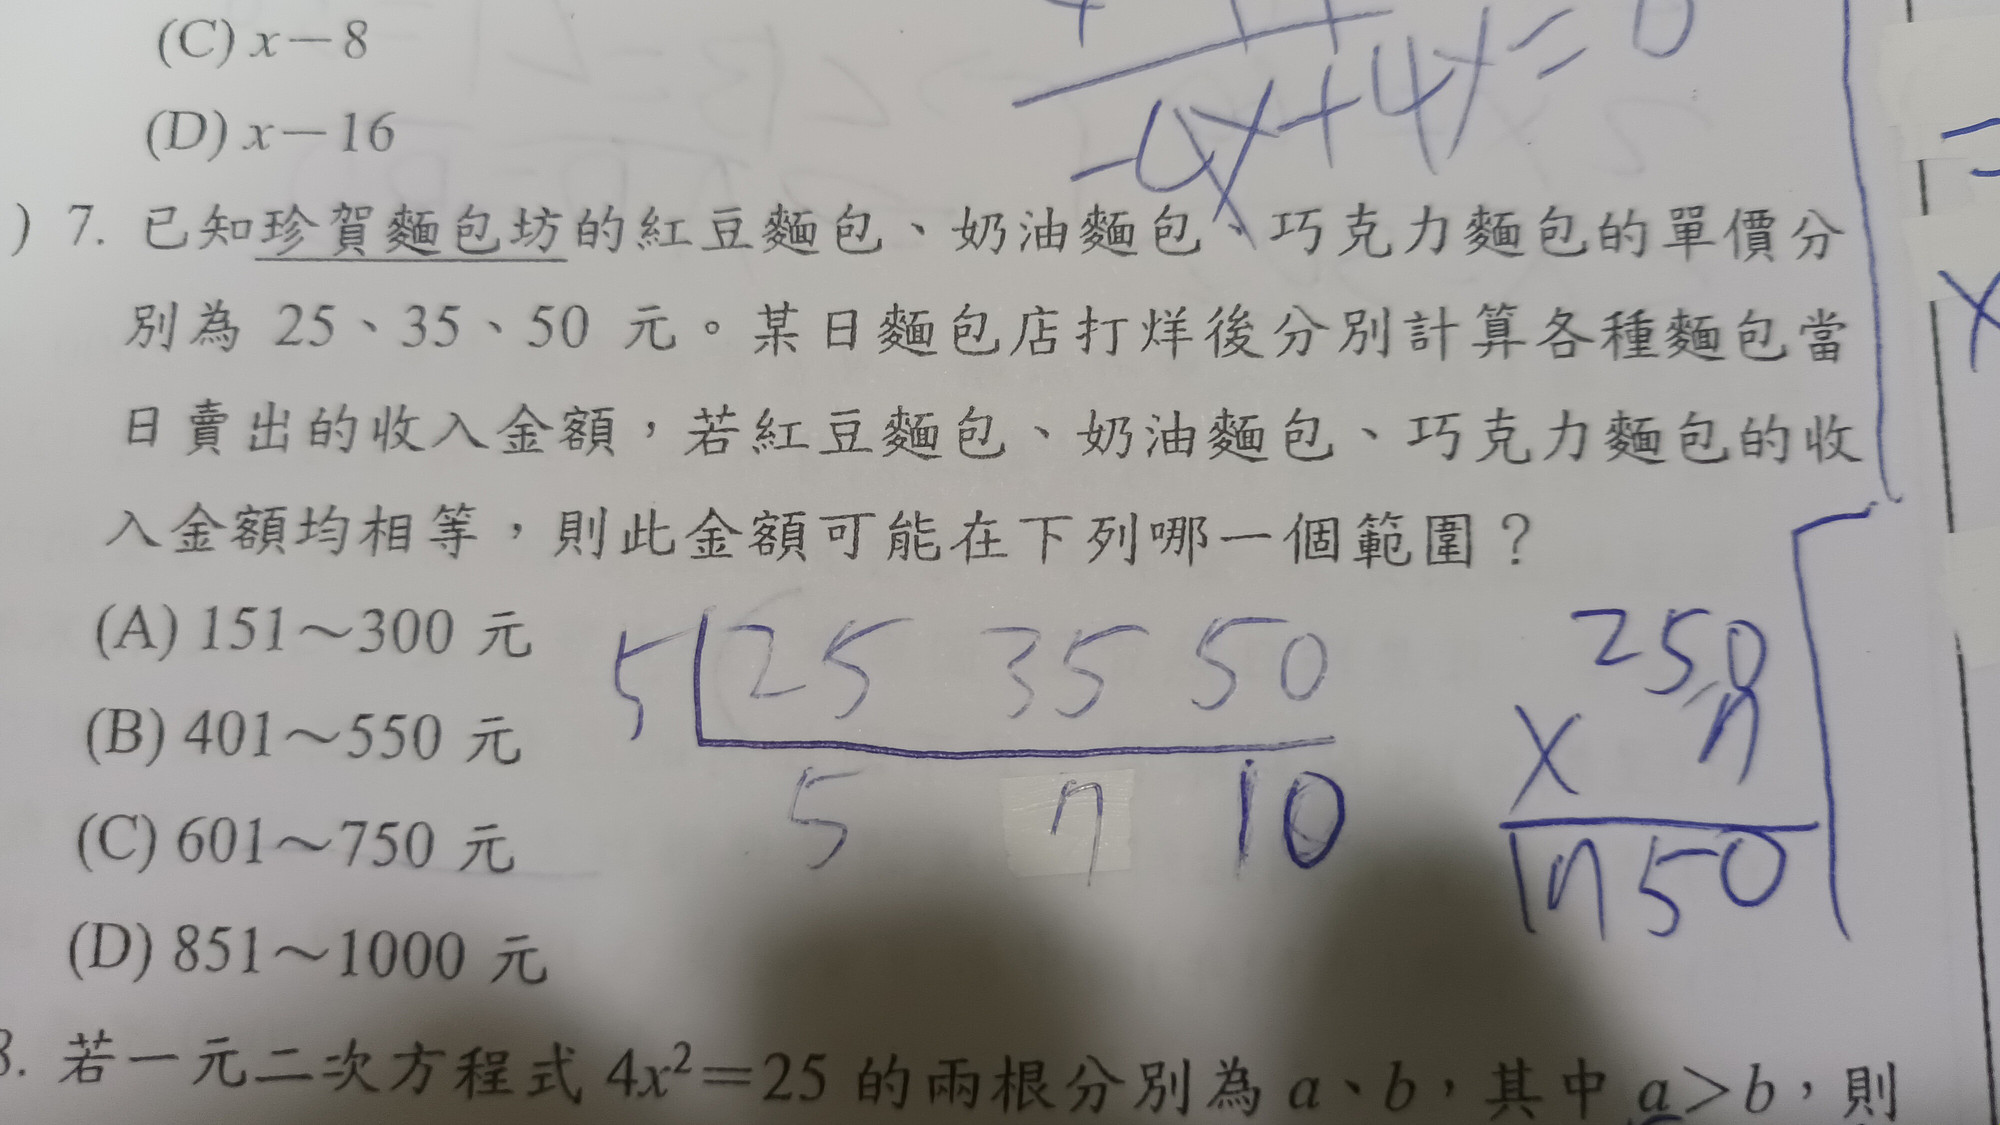 (C) x－8
(D) x－16
－4x＋4y＝0
) 7. 已知珍賀麵包坊的紅豆麵包、奶油麵包、巧克力麵包的單價分
別為 25、35、50 元。某日麵包店打烊後分別計算各種麵包當
日賣出的收入金額，若紅豆麵包、奶油麵包、巧克力麵包的收
入金額均相等，則此金額可能在下列哪一個範圍？
(A) 151～300 元
(B) 401～550 元
(C) 601～750 元
(D) 851～1000 元
5 25 35 50
5 7 10
250
× 7
1750
8. 若一元二次方程式 4x²＝25 的兩根分別為 a、b，其中 a＞b，則